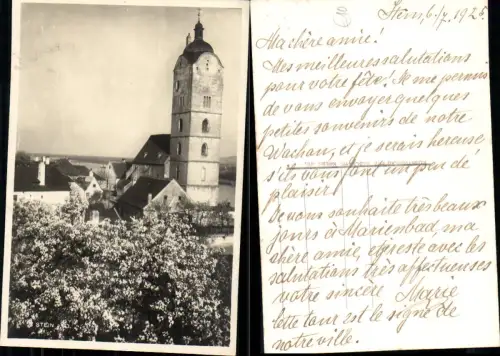 STEIN
Stein, 6/7. 1925.
Ma chère amie!
Mes meilleures salutations
pour votre fête! Je me permis
de vous envoyer quelques
petites souvenirs de notre
Wachau, et je serais hereuse
s'ils vous font un peu de
plaisir!
Je vous souhaite très beaux
jours à Marienbad, ma
chère amie, et reste avec les
salutations très affectueuses
votre sincère Marie
Cette tour est le signe de
notre ville.